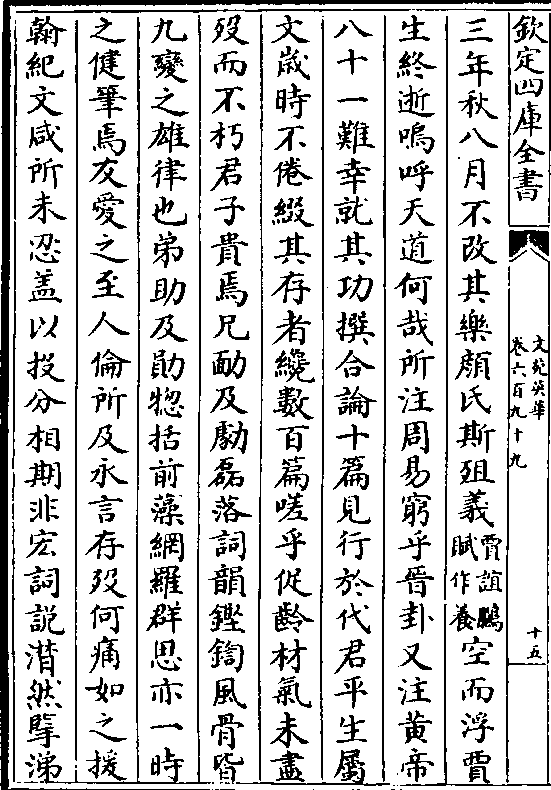 欽定四庫全書
文苑英華
卷六百九十九
十五
三年秋八月不改其樂顔氏斯殂義賈誼鵩賦作養空而浮賈
生終逝嗚呼天道何哉所注周易窮乎晉卦又注黄帝
八十一難幸就其功撰合論十篇見行於代君平生屬
文嵗時不倦綴其存者纔數百篇嗟乎促齡材氣未盡
歿而不朽君子貴焉兄勔及勮磊落詞韻鏗鍧風骨皆
九變之雄律也弟助及勛惣括前藻網羅群思亦一時
之健筆焉友愛之至人倫所及永言存歿何痛如之援
翰紀文咸所未忍盖以投分相期非宏詞説潸然擥涕